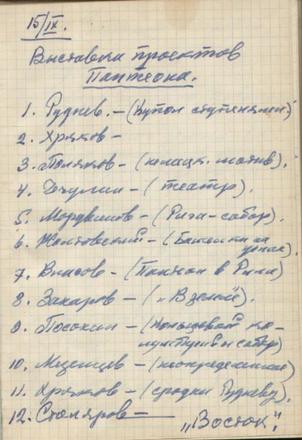 15/IX.
Выставка проектов
Пантеона.
1. Руднев. - (Купол ступенями)
2. Хряков -
3. Поляков - (класс. мотив).
4. Дочугин - (театр).
5. Мордвинов - (Рига - собор).
6. Жолтовский - (Башенки на
7. Власов - (Пантеон в Риме)
8. Захаров - („В земле").
9. Посохин - (Кольцевой
собор)
10. Мезенцев - (неопределенное)
11. Хряков - (сродни Рудневу).
12. Столяров - „Восток".